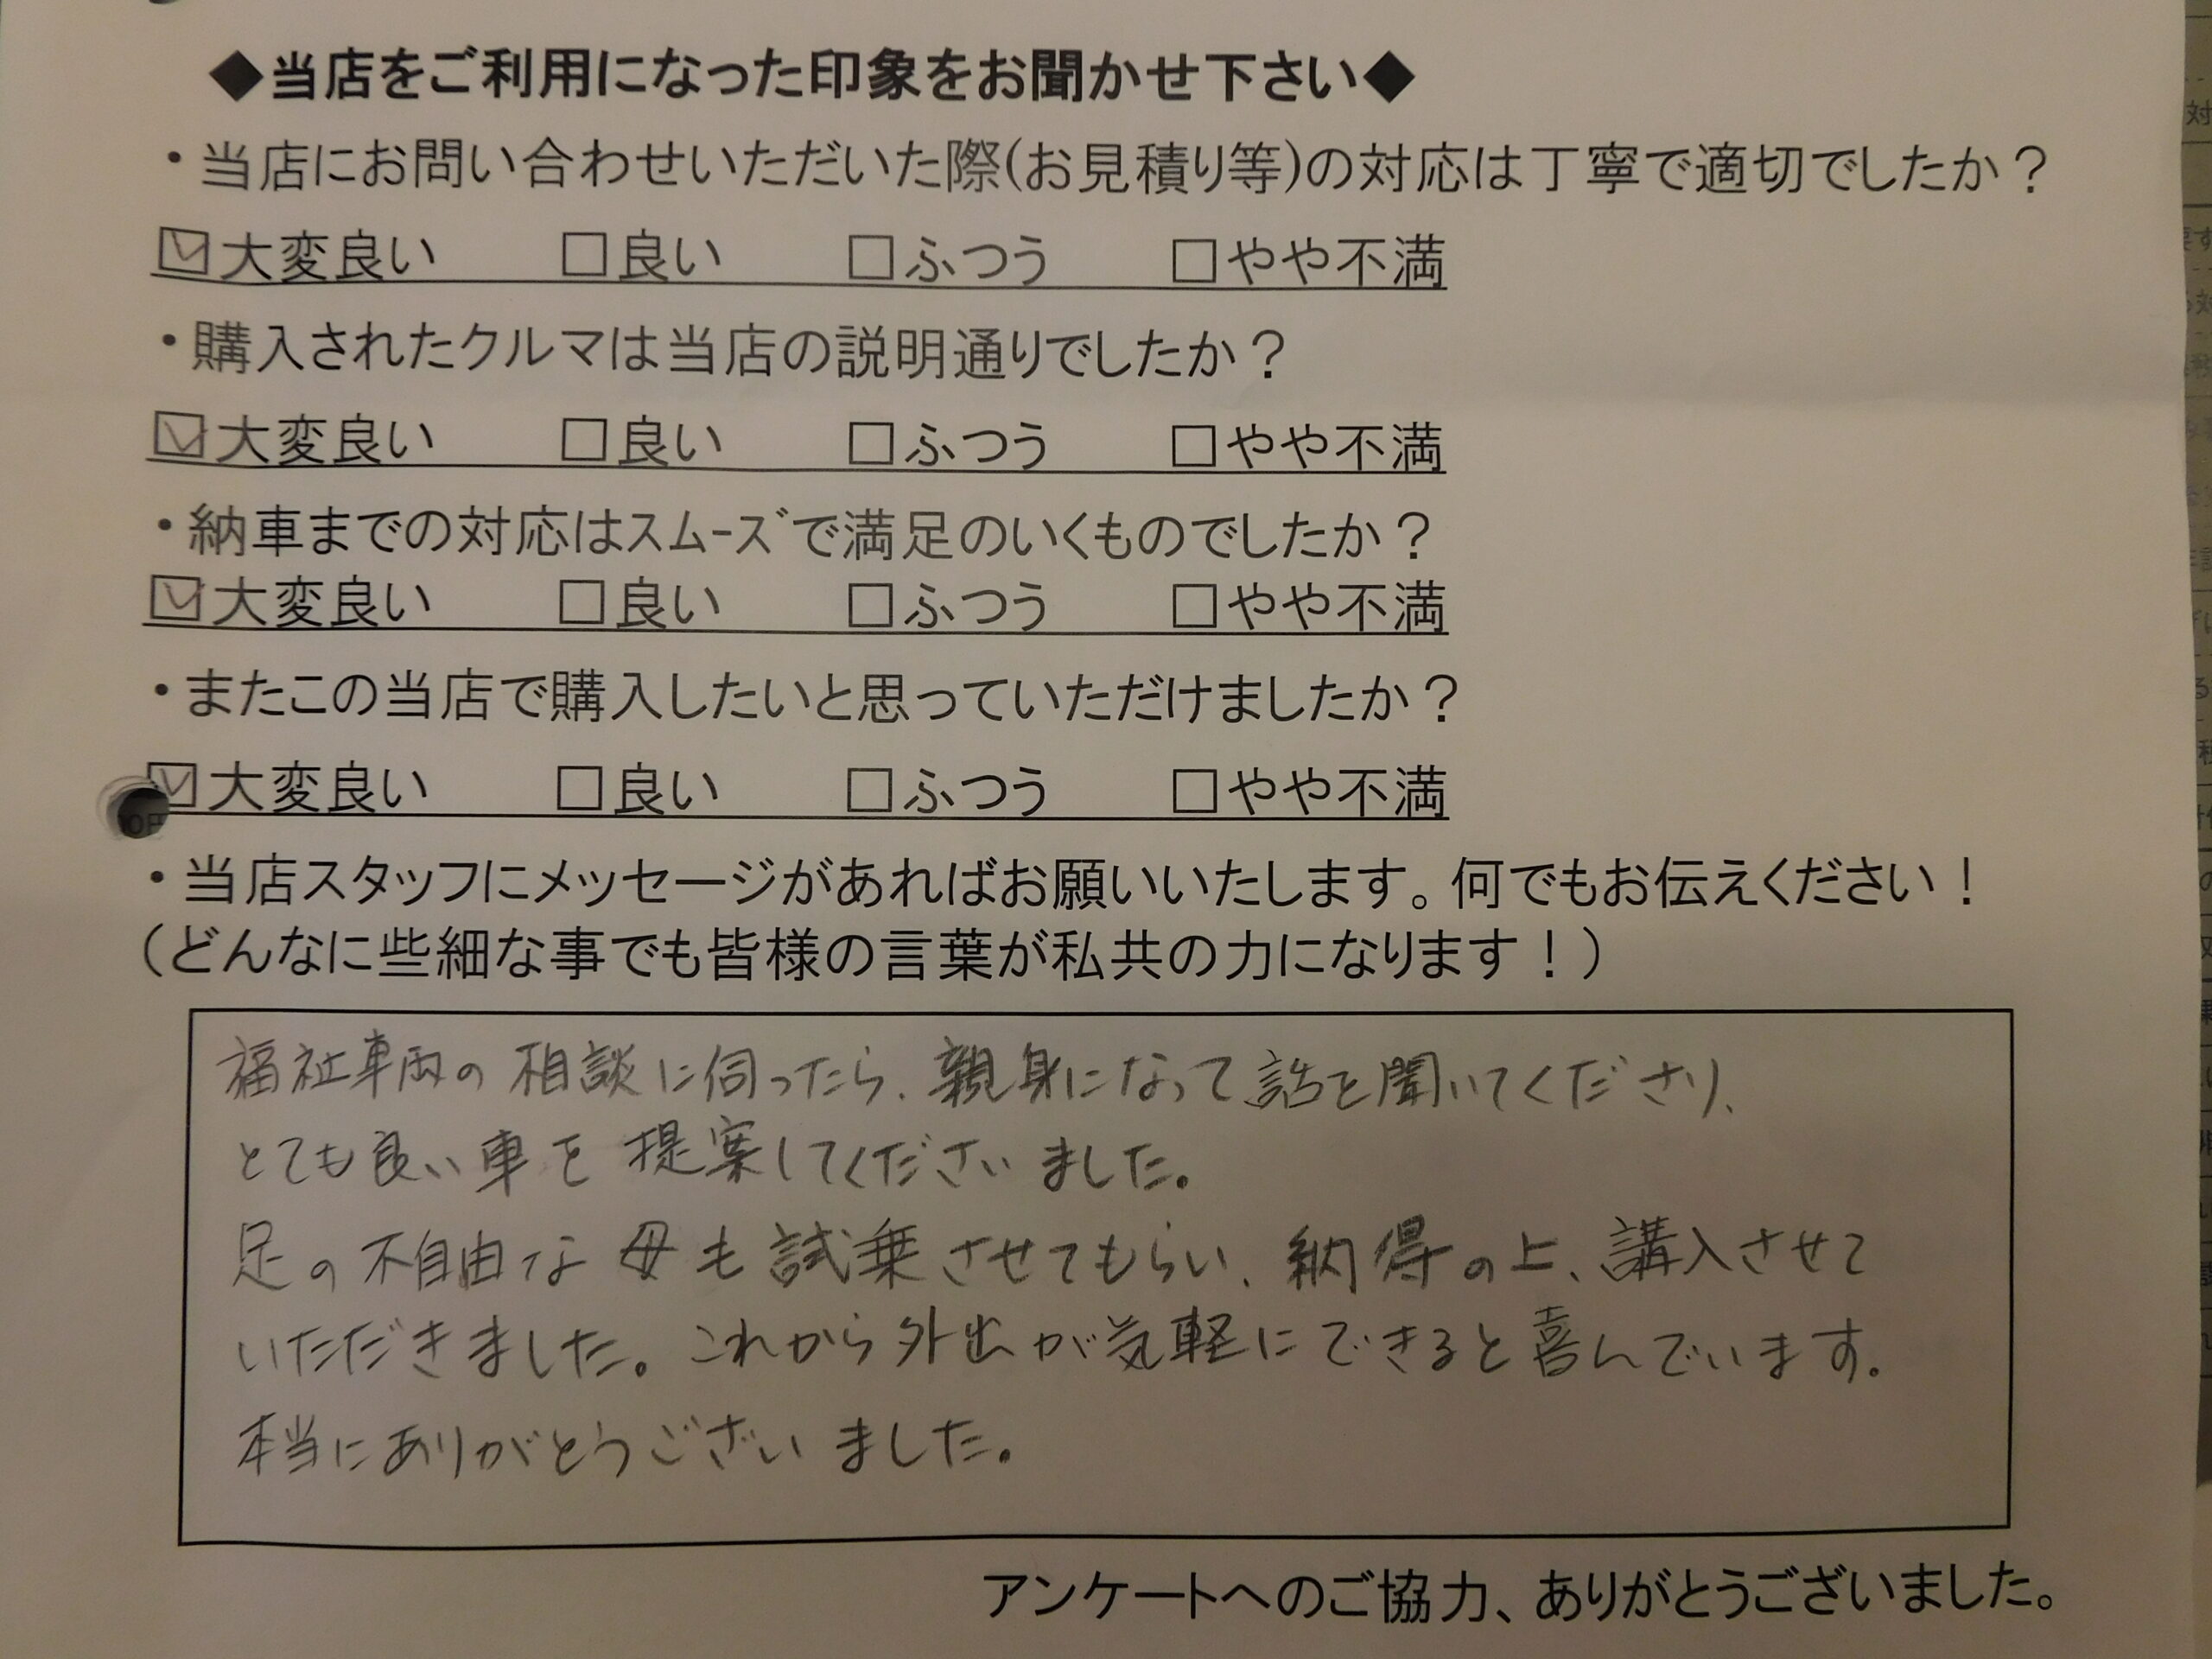 ◆当店をご利用になった印象をお聞かせ下さい◆
・当店にお問い合わせいただいた際(お見積り等)の対応は丁寧で適切でしたか？
☑大変良い □良い □ふつう □やや不満
・購入されたクルマは当店の説明通りでしたか？
☑大変良い □良い □ふつう □やや不満
・納車までの対応はｽﾑｰｽﾞで満足のいくものでしたか？
☑大変良い □良い □ふつう □やや不満
・またこの当店で購入したいと思っていただけましたか？
☑大変良い □良い □ふつう □やや不満
・当店スタッフにメッセージがあればお願いいたします。何でもお伝えください！
（どんなに些細な事でも皆様の言葉が私共の力になります！）
福祉車両の相談に伺ったら、親身になって話を聞いてくださり、
とても良い車を提案してくださいました。
足の不自由な母も試乗させてもらい、納得の上、講入させて
いただきました。これから外出が気軽にできると喜んでいます。
本当にありがとうございました。
アンケートへのご協力、ありがとうございました。